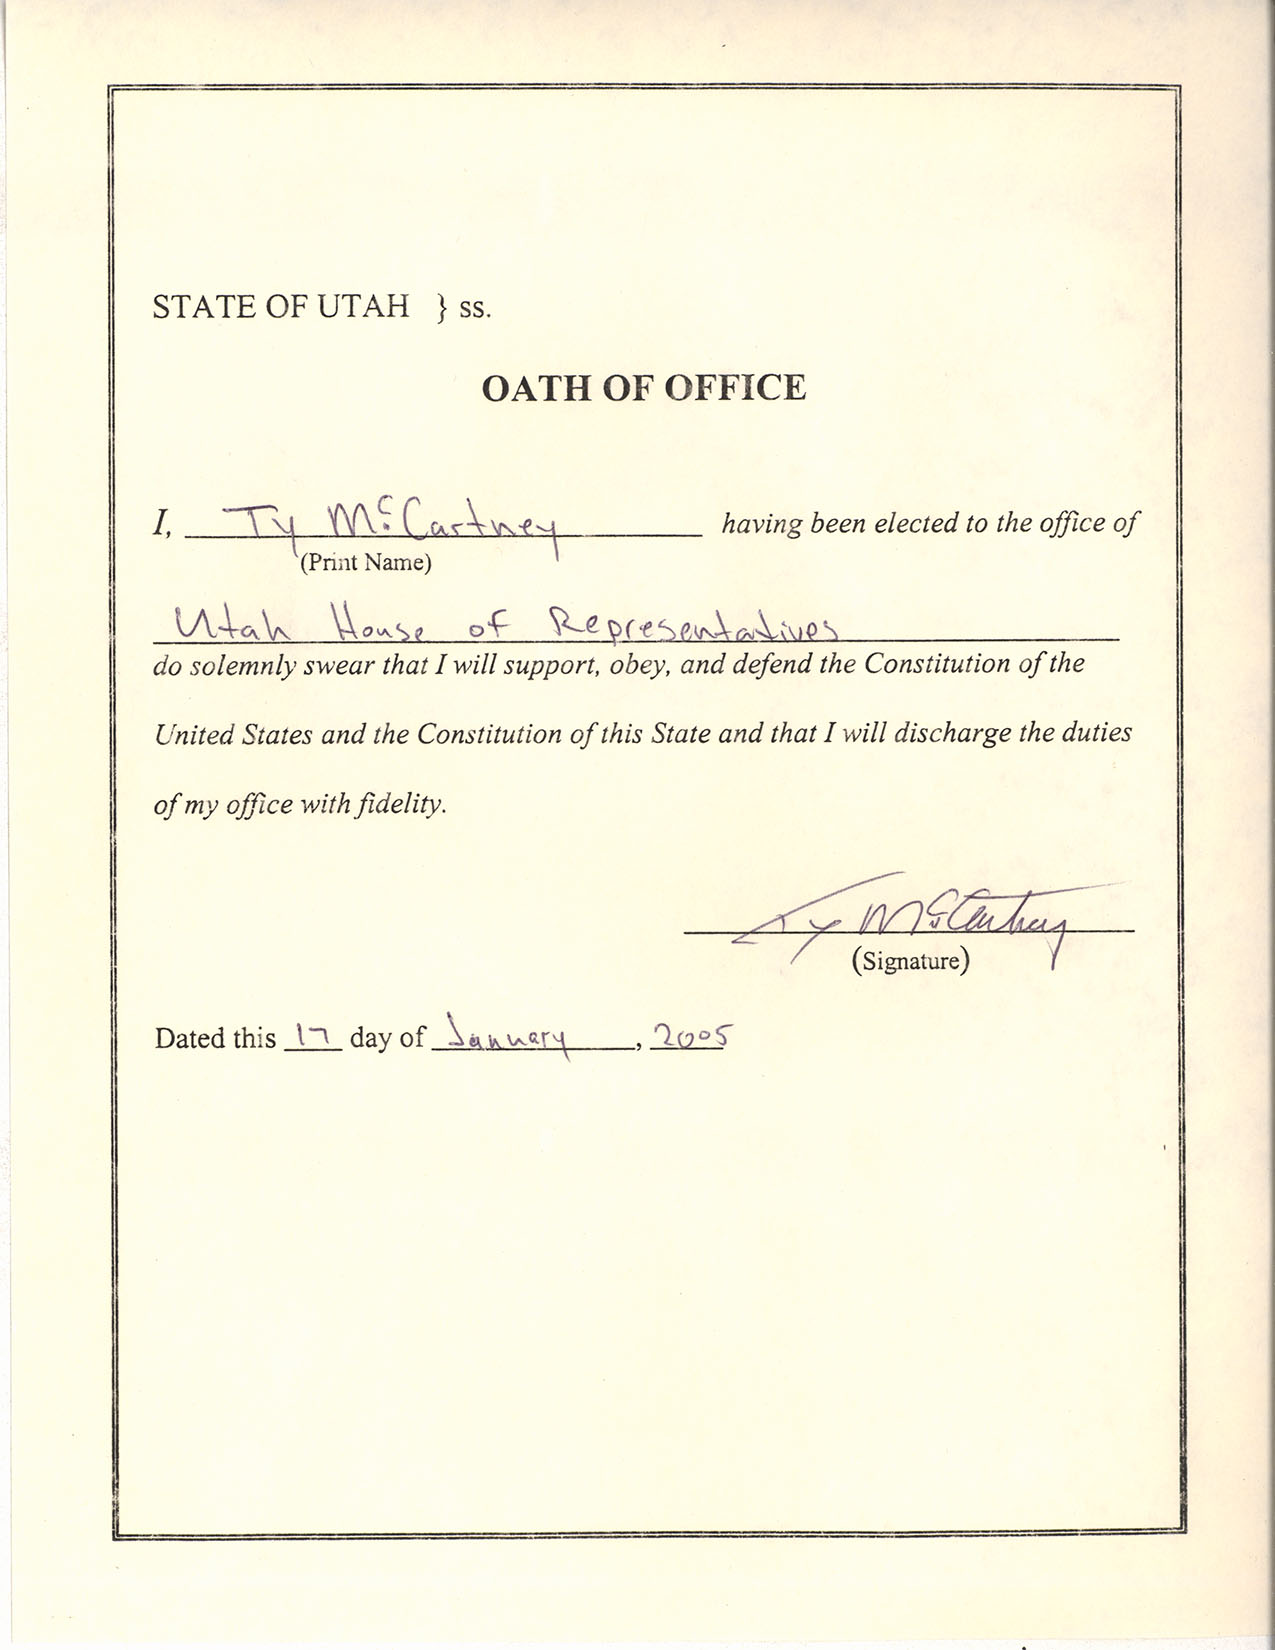 STATE OF UTAH } ss.
OATH OF OFFICE
I, Ty McCartney having been elected to the office of
(Print Name)
Utah House of Representatives
do solemnly swear that I will support, obey, and defend the Constitution of the
United States and the Constitution of this State and that I will discharge the duties
of my office with fidelity.
Ty McCartney
(Signature)
Dated this 17 day of January, 2005